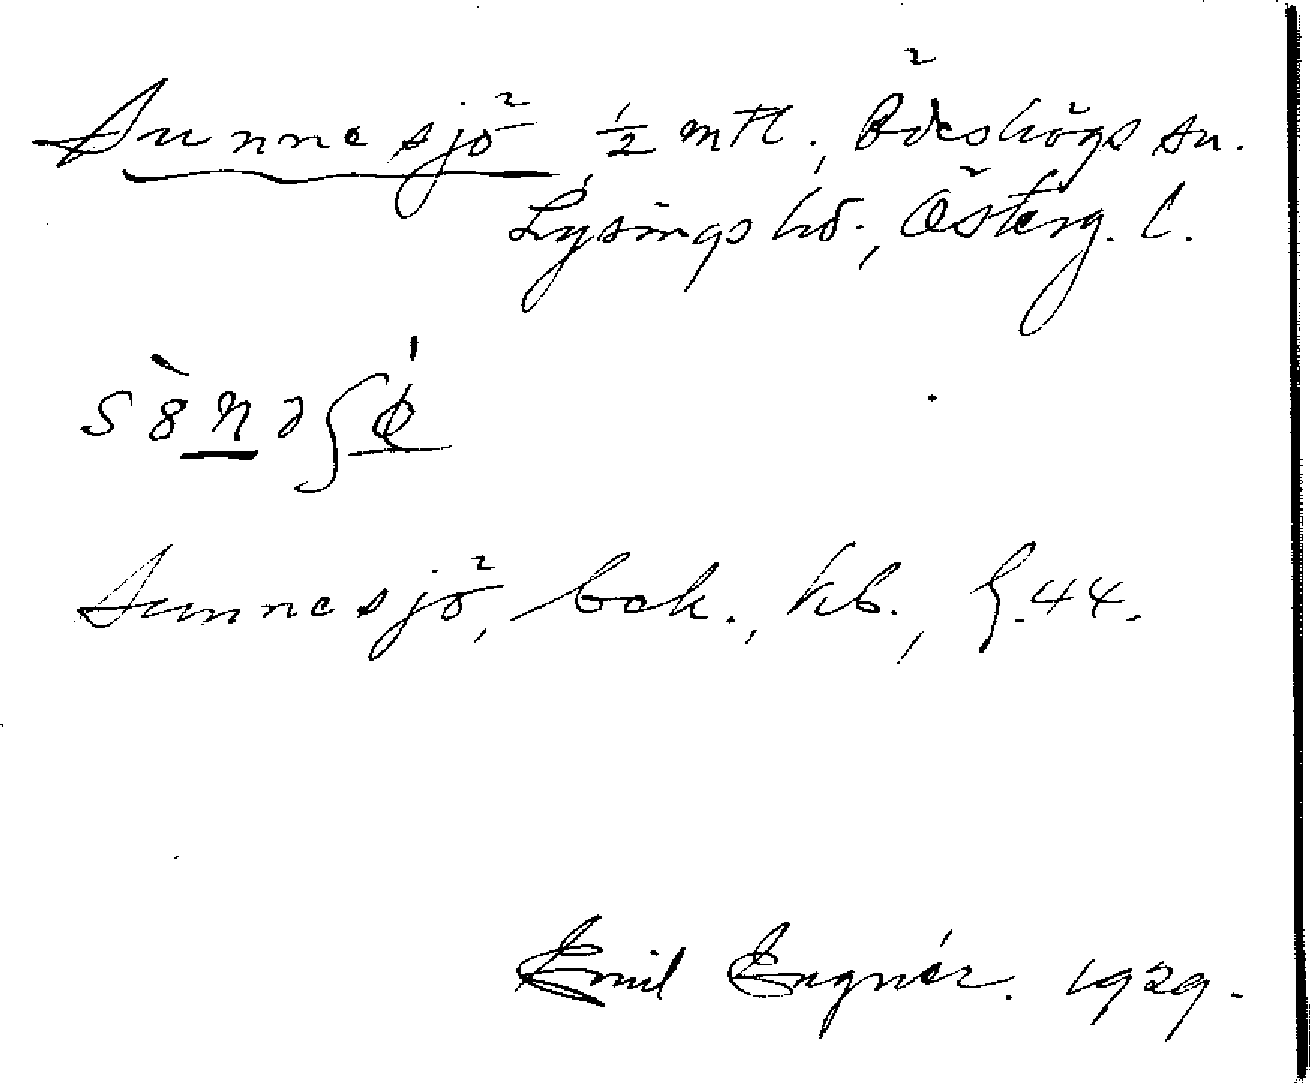 Sunnesjö ½ mtl., Ödeshögs sn.
Lysings hd., Österg. l.
Sunnesjö, bok., kb., § 44.
Emil Engnér. 1929.